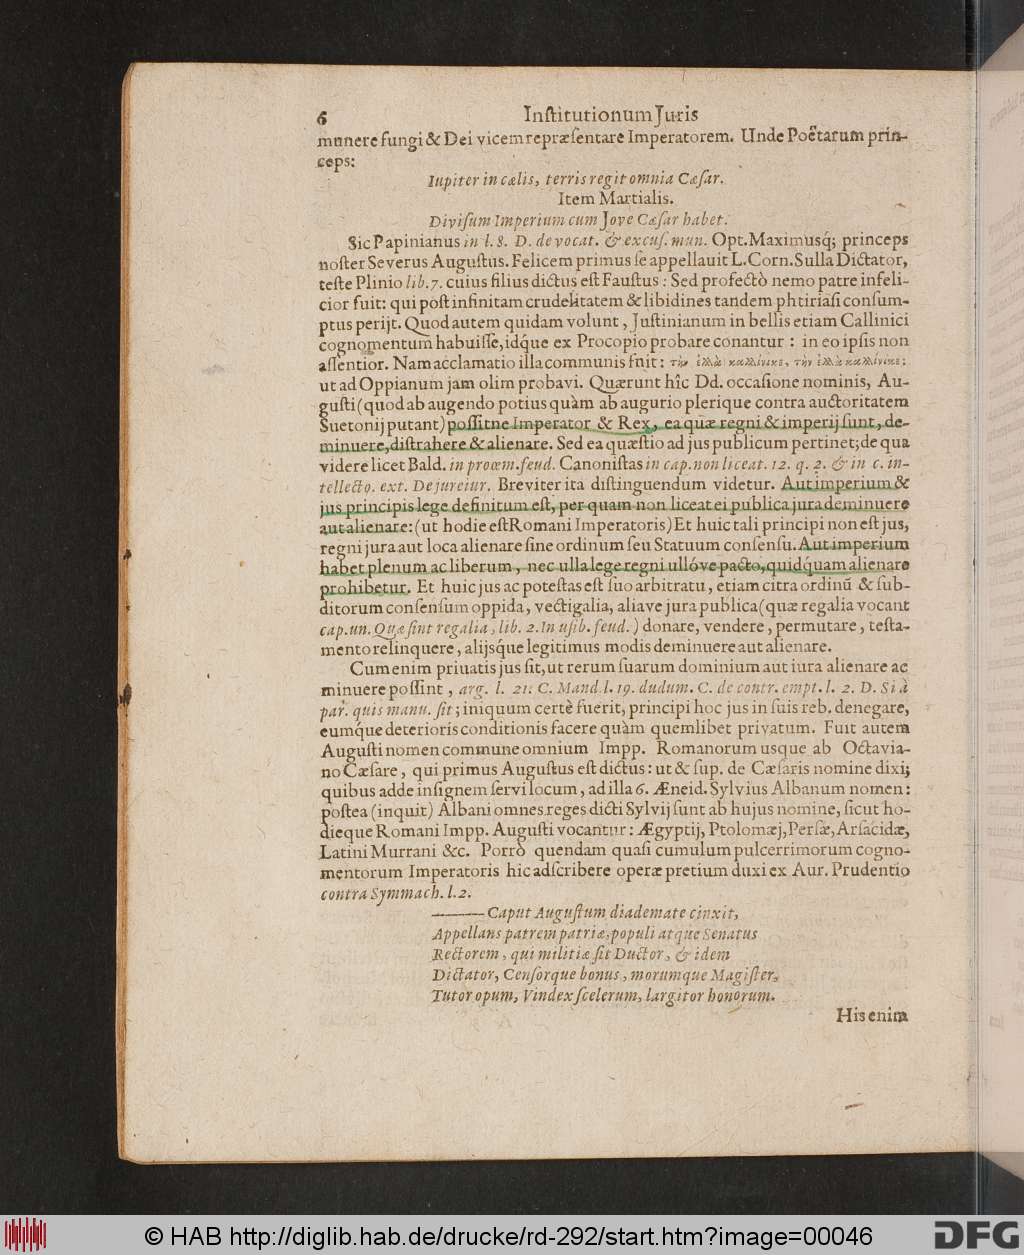 6 Inſtitutionum Juris
munere fungi & Dei vicem repræſentare Imperatorem. Unde Poëtarum prin-
ceps:
Iupiter in cælis, terris regit omnia Cæſar.
Item Martialis.
Diviſum Imperium cum Jove Cæſar habet.
Sic Papinianus in l. 8. D. de vocat. & excuſ. mun. Opt. Maximusq́; princeps
noſter Severus Auguſtus. Felicem primus ſe appellauit L. Corn. Sulla Dictator,
teſte Plinio lib. 7. cuius filius dictus eſt Fauſtus: Sed profectò nemo patre infeli-
cior fuit: qui poſt infinitam crudelitatem & libidines tandem phtiriaſi conſum-
ptus perijt. Quod autem quidam volunt, Juſtinianum in bellis etiam Callinici
cognomentum habuiſſe, idq́ue ex Procopio probare conantur: in eo ipſis non
aſſentior. Nam acclamatio illa communis fnit:
ut ad Oppianum jam olim probavi. Quærunt hîc Dd. occaſione nominis, Au-
guſti (quod ab augendo potius quàm ab augurio plerique contra auctoritatem
Suetonij putant) poſſitne Imperator & Rex, ea quæ regni & imperij ſunt, de-
minuere, diſtrahere & alienare. Sed ea quæſtio ad jus publicum pertinet; de qua
videre licet Bald. in proœm. feud. Canoniſtas in cap. non liceat. 12. q. 2. & in c. in-
tellecto. ext. De jureiur. Breviter ita diſtinguendum videtur. Aut imperium &
jus principis lege definitum eſt, per quam non liceat ei publica jura deminuere
aut alienare: (ut hodie eſt Romani Imperatoris) Et huic tali principi non eſt jus,
regni jura aut loca alienare ſine ordinum ſeu Statuum conſenſu. Aut imperium
habet plenum ac liberum, nec ulla lege regni ullóve pacto, quidq́uam alienare
prohibetur. Et huic jus ac poteſtas eſt ſuo arbitratu, etiam citra ordinū & ſub-
ditorum conſenſum oppida, vectigalia, aliave jura publica (quæ regalia vocant
cap. un. Quæ ſint regalia, lib. 2. In uſib. feud.) donare, vendere, permutare, teſta-
mento relinquere, alijsq́ue legitimus modis deminuere aut alienare.
Cum enim priuatis jus ſit, ut rerum ſuarum dominium aut iura alienare ac
minuere poſſint, arg. l. 21. C. Mand. l. 19. dudum. C. de contr. empt. l. 2. D. Si à
par. quis manu. ſit; iniquum certè fuerit, principi hoc jus in ſuis reb. denegare,
eumq́ue deterioris conditionis facere quàm quemlibet privatum. Fuit autem
Auguſti nomen commune omnium Impp. Romanorum usque ab Octavia-
no Cæſare, qui primus Auguſtus eſt dictus: ut & ſup. de Cæſaris nomine dixi;
quibus adde inſignem ſervi locum, ad illa 6. Æneid. Sylvius Albanum nomen:
poſtea (inquit) Albani omnes reges dicti Sylvij ſunt ab hujus nomine, ſicut ho-
dieque Romani Impp. Auguſti vocantur: Ægyptij, Ptolomæj, Perſæ, Arſacidæ,
Latini Murrani &c. Porrò quendam quaſi cumulum pulcerrimorum cogno-
mentorum Imperatoris hic adſcribere operæ pretium duxi ex Aur. Prudentio
contra Symmach. l. 2.
——— Caput Auguſtum diademate cinxit,
Appellans patrem patriæ, populi atque Senatus
Rectorem, qui militiæ ſit Ductor, & idem
Dictator, Cenſorque bonus, morumque Magiſter,
Tutor opum, Vindex ſcelerum, largitor honorum.
His enim
© HAB http://diglib.hab.de/drucke/rd-292/start.htm?image=00046
DFG